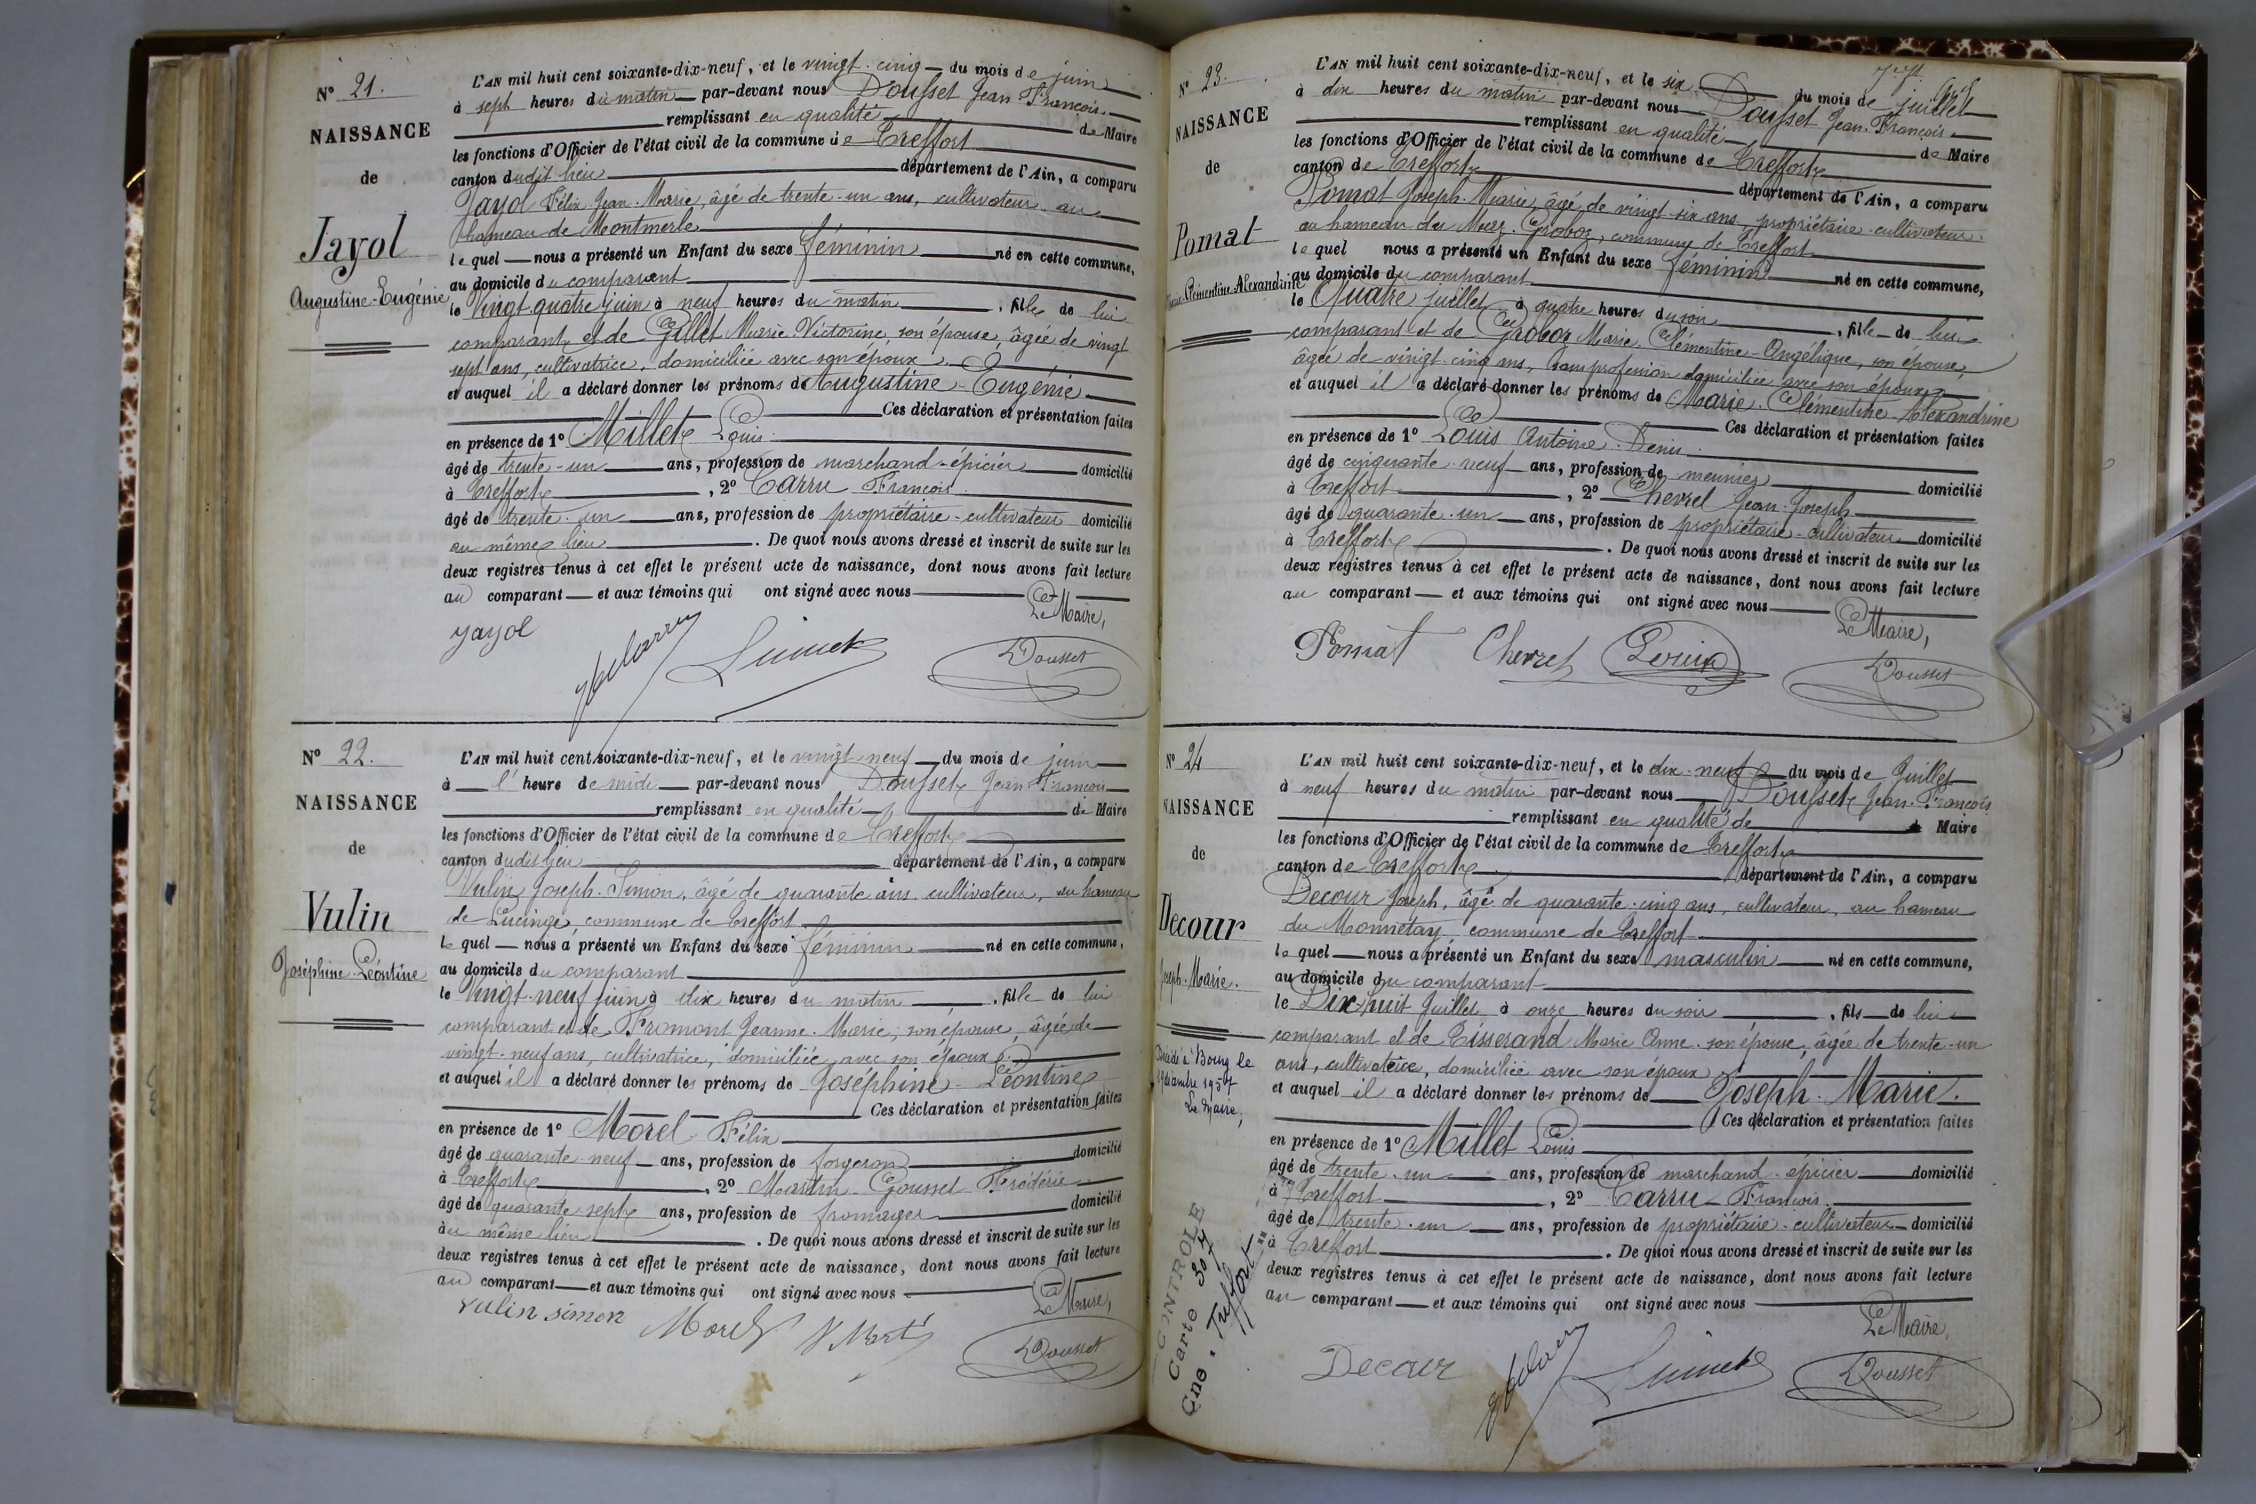 N° 21.
NAISSANCE
de
Jayol
Augustine-Eugénie
L'AN mil huit cent soixante-dix-neuf, et le vingt-cinq du mois de juin
à sept heures du matin par-devant nous Dousset Jean-François
remplissant en qualité de Maire
les fonctions d'Officier de l'état civil de la commune de Treffort
canton dudit lieu département de l'Ain, a comparu
Jayol Félix-Jean-Marie, âgé de trente-un ans, cultivateur au
hameau de Montmerle
le quel nous a présenté un Enfant du sexe féminin né en cette commune,
au domicile du comparant
le Vingt-quatre juin à neuf heures du matin, fille de lui
comparant et de Gillet Marie-Victorine, son épouse, âgée de vingt
sept ans, cultivatrice, domiciliée avec son époux
et auquel il a déclaré donner les prénoms de Augustine-Eugénie
Ces déclaration et présentation faites
en présence de 1° Millet Louis
âgé de trente-un ans, profession de marchand-épicier domicilié
à Treffort, 2° Carru François
âgé de trente-un ans, profession de propriétaire-cultivateur domicilié
au même lieu. De quoi nous avons dressé et inscrit de suite sur les
deux registres tenus à cet effet le présent acte de naissance, dont nous avons fait lecture
au comparant et aux témoins qui ont signé avec nous
Le Maire,
Jayol
Dousset
N° 22.
NAISSANCE
de
Vulin
Joséphine-Léontine
L'AN mil huit cent soixante-dix-neuf, et le vingt-neuf du mois de juin
à l'heure de midi par-devant nous Dousset Jean-François
remplissant en qualité de Maire
les fonctions d'Officier de l'état civil de la commune de Treffort
canton dudit lieu département de l'Ain, a comparu
Vulin Joseph-Simon, âgé de quarante ans, cultivateur, au hameau
de Lucinge, commune de Treffort
le quel nous a présenté un Enfant du sexe féminin né en cette commune,
au domicile du comparant
le Vingt-neuf juin à dix heures du matin, fille de lui
comparant et de Fromont Jeanne-Marie, son épouse, âgée de
vingt-neuf ans, cultivatrice, domiciliée avec son époux
et auquel il a déclaré donner les prénoms de Joséphine-Léontine
Ces déclaration et présentation faites
en présence de 1° Morel Félix
âgé de quarante-neuf ans, profession de forgeron domicilié
à Treffort, 2° Martin Gousset Frédéric
âgé de quarante-sept ans, profession de fromager domicilié
au même lieu. De quoi nous avons dressé et inscrit de suite sur les
deux registres tenus à cet effet le présent acte de naissance, dont nous avons fait lecture
au comparant et aux témoins qui ont signé avec nous
Le Maire,
Vulin simon
Morel
Dousset
N° 23.
NAISSANCE
de
Pomat
Marie-Clémentine-Alexandrine
L'AN mil huit cent soixante-dix-neuf, et le six du mois de juillet
à dix heures du matin par-devant nous Dousset Jean-François
remplissant en qualité de Maire
les fonctions d'Officier de l'état civil de la commune de Treffort
canton de Treffort département de l'Ain, a comparu
Pomat Joseph-Marie, âgé de vingt-six ans, propriétaire-cultivateur
au hameau du Maz-Groboz, commune de Treffort
le quel nous a présenté un Enfant du sexe féminin né en cette commune,
au domicile du comparant
le Quatre juillet à quatre heures du soir, fille de lui
comparant et de Groboz Marie-Clémentine-Angélique, son épouse,
âgée de vingt-cinq ans, sans profession domiciliée avec son époux
et auquel il a déclaré donner les prénoms de Marie-Clémentine-Alexandrine
Ces déclaration et présentation faites
en présence de 1° Louis Antoine-Denis
âgé de cinquante-neuf ans, profession de meunier domicilié
à Treffort, 2° Chevrel Jean-Joseph
âgé de quarante-un ans, profession de propriétaire-cultivateur domicilié
à Treffort. De quoi nous avons dressé et inscrit de suite sur les
deux registres tenus à cet effet le présent acte de naissance, dont nous avons fait lecture
au comparant et aux témoins qui ont signé avec nous
Le Maire,
Pomat
Chevrel
Louis
Dousset
N° 24
NAISSANCE
de
Decour
Joseph-Marie.
Décédé à Bourg le
décembre 1957
Le Maire,
CONTROLE
Carte
Cne. Treffort
L'AN mil huit cent soixante-dix-neuf, et le dix-neuf du mois de Juillet
à neuf heures du matin par-devant nous Dousset Jean-François
remplissant en qualité de Maire
les fonctions d'Officier de l'état civil de la commune de Treffort
canton de Treffort département de l'Ain, a comparu
Decour Joseph, âgé de quarante-cinq ans, cultivateur, au hameau
du Monnetay commune de Treffort
le quel nous a présenté un Enfant du sexe masculin né en cette commune,
au domicile du comparant
le Dix-huit Juillet à onze heures du soir, fils de lui
comparant et de Tisserand Marie Anne, son épouse, âgée de trente-un
ans, cultivatrice, domiciliée avec son époux
et auquel il a déclaré donner les prénoms de Joseph-Marie.
Ces déclaration et présentation faites
en présence de 1° Millet Louis
âgé de trente-un ans, profession de marchand-épicier domicilié
à Treffort, 2° Carru François
âgé de trente-un ans, profession de propriétaire-cultivateur domicilié
à Treffort. De quoi nous avons dressé et inscrit de suite sur les
deux registres tenus à cet effet le présent acte de naissance, dont nous avons fait lecture
au comparant et aux témoins qui ont signé avec nous
Le Maire,
Decour
Dousset